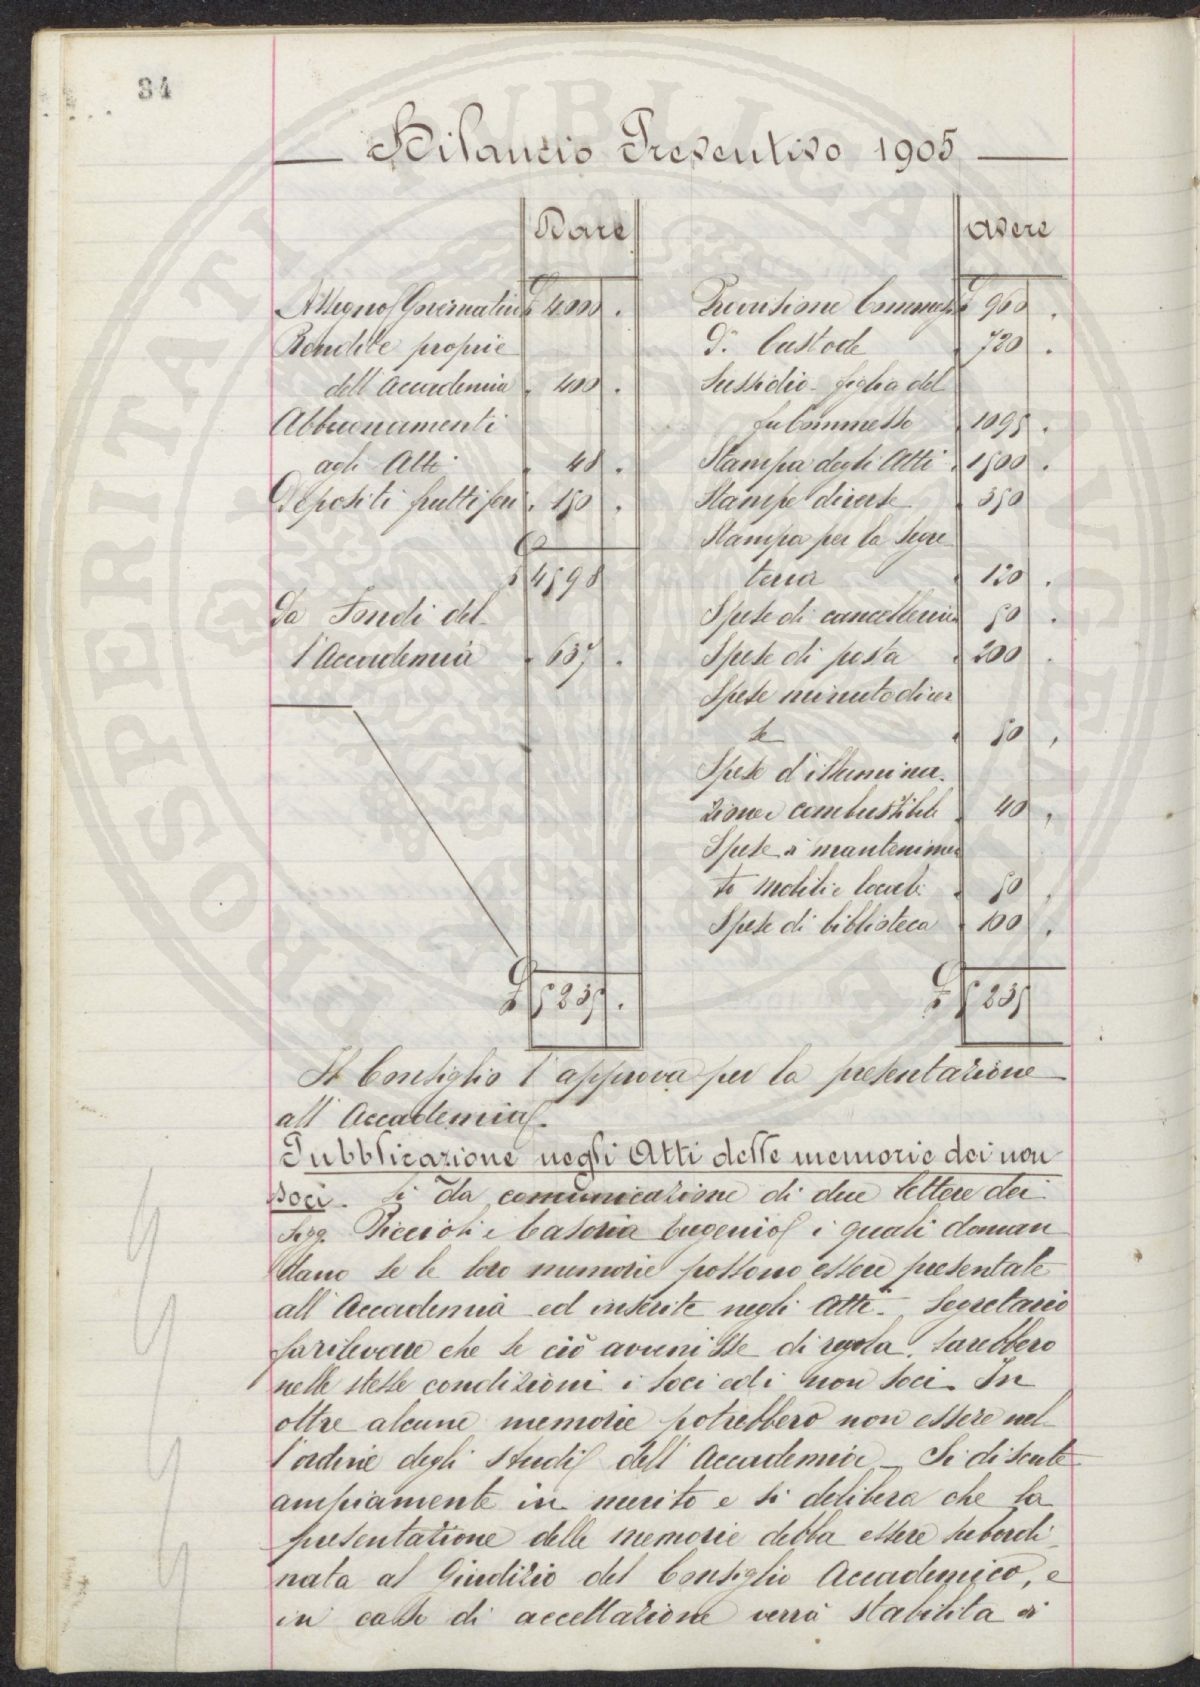 34
Bilancio Preventivo 1905
Dare
Avere
Assegno Governativo £ 4000 .
Rendite proprie
dell'Accademia " 400 .
Abbuonamenti
agli Atti " 48 .
Depositi fruttiferi " 150 .
£ 4598
Da Fondi del
l'Accademia " 637 .
£ 5235 .
Pensione Commesso £ 960 .
Dº Custode " 720 .
Sussidio figlia del
fu Commesso " 1095 .
Stampa degli Atti " 1500 .
Stampe diverse " 350
Stampa per la Segre
teria " 120 .
Spese di cancelleria 50 .
Spese di posta " 200 .
Spese minute diver
se " 50 ,
Spese d'illumina
zione e combustibile " 40 ,
Spese di mantenimen
to mobili e locali " 50 ,
Spese di biblioteca " 100 ,
£ 5235
Il Consiglio l'approva per la presentazione
all'Accademia.
Pubblicazione negli Atti delle memorie dei non
soci. Si dà comunicazione di due lettere dei
Sigg. Piccioli e Casoria Eugenio i quali doman
dano se le loro memorie possono essere presentate
all'Accademia ed inserite negli Atti. Segretario
fa rilevare che se ciò avvenisse di regola, sarebbero
nelle stesse condizioni i soci ed i non soci. In
oltre alcune memorie potrebbero non essere nel
l'ordine degli studi dell'Accademia — Si discute
ampiamente in merito e si delibera che la
presentazione delle memorie debba essere subordi
nata al Giudizio del Consiglio Accademico, e
in caso di accettazione verrà stabilita di
PROSPERITATI PUBLICAE AUGENDAE